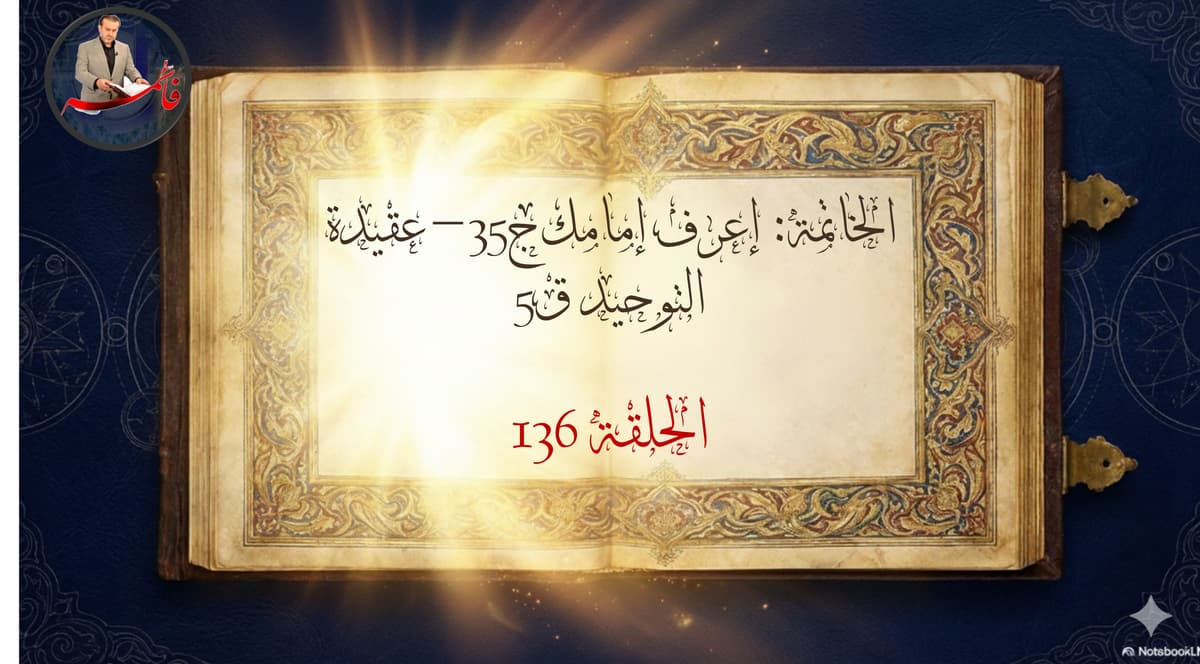 فاطمة
الخاتمة: إعرف إمامك ج35 – عقيدة
التوحيد ق5
الحلقة 136
NotsbookLM